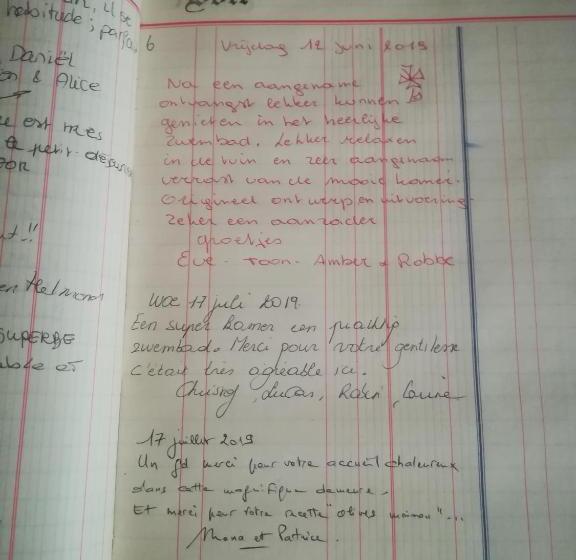 habitude ; parfa
Daniël
& Alice
est très
petit-déjeuner
!!
en Helmond
SUPERBE
6
Vrijdag 12 juni 2019
Na een aangename
ontvangst lekker kunnen
genieten in het heerlijke
zwembad. Lekker relaxen
in de tuin en zeer aangenaam
verrast van de mooie kamer.
Origineel ontwerp en uitvoering
Zeker een aanrader
groetjes
Eve - Toon - Amber & Robbe
Woe 17 juli 2019
Een super kamer een prachtig
zwembad. Merci pour votre gentilesse
c'était très agréable ici.
Lucas, Robin, Laurie
17 juillet 2019
Un gd merci pour votre accueil chaleureux
dans cette magnifique demeure.
Et merci pour votre recette "olives maison"...
Mona et Patrice.